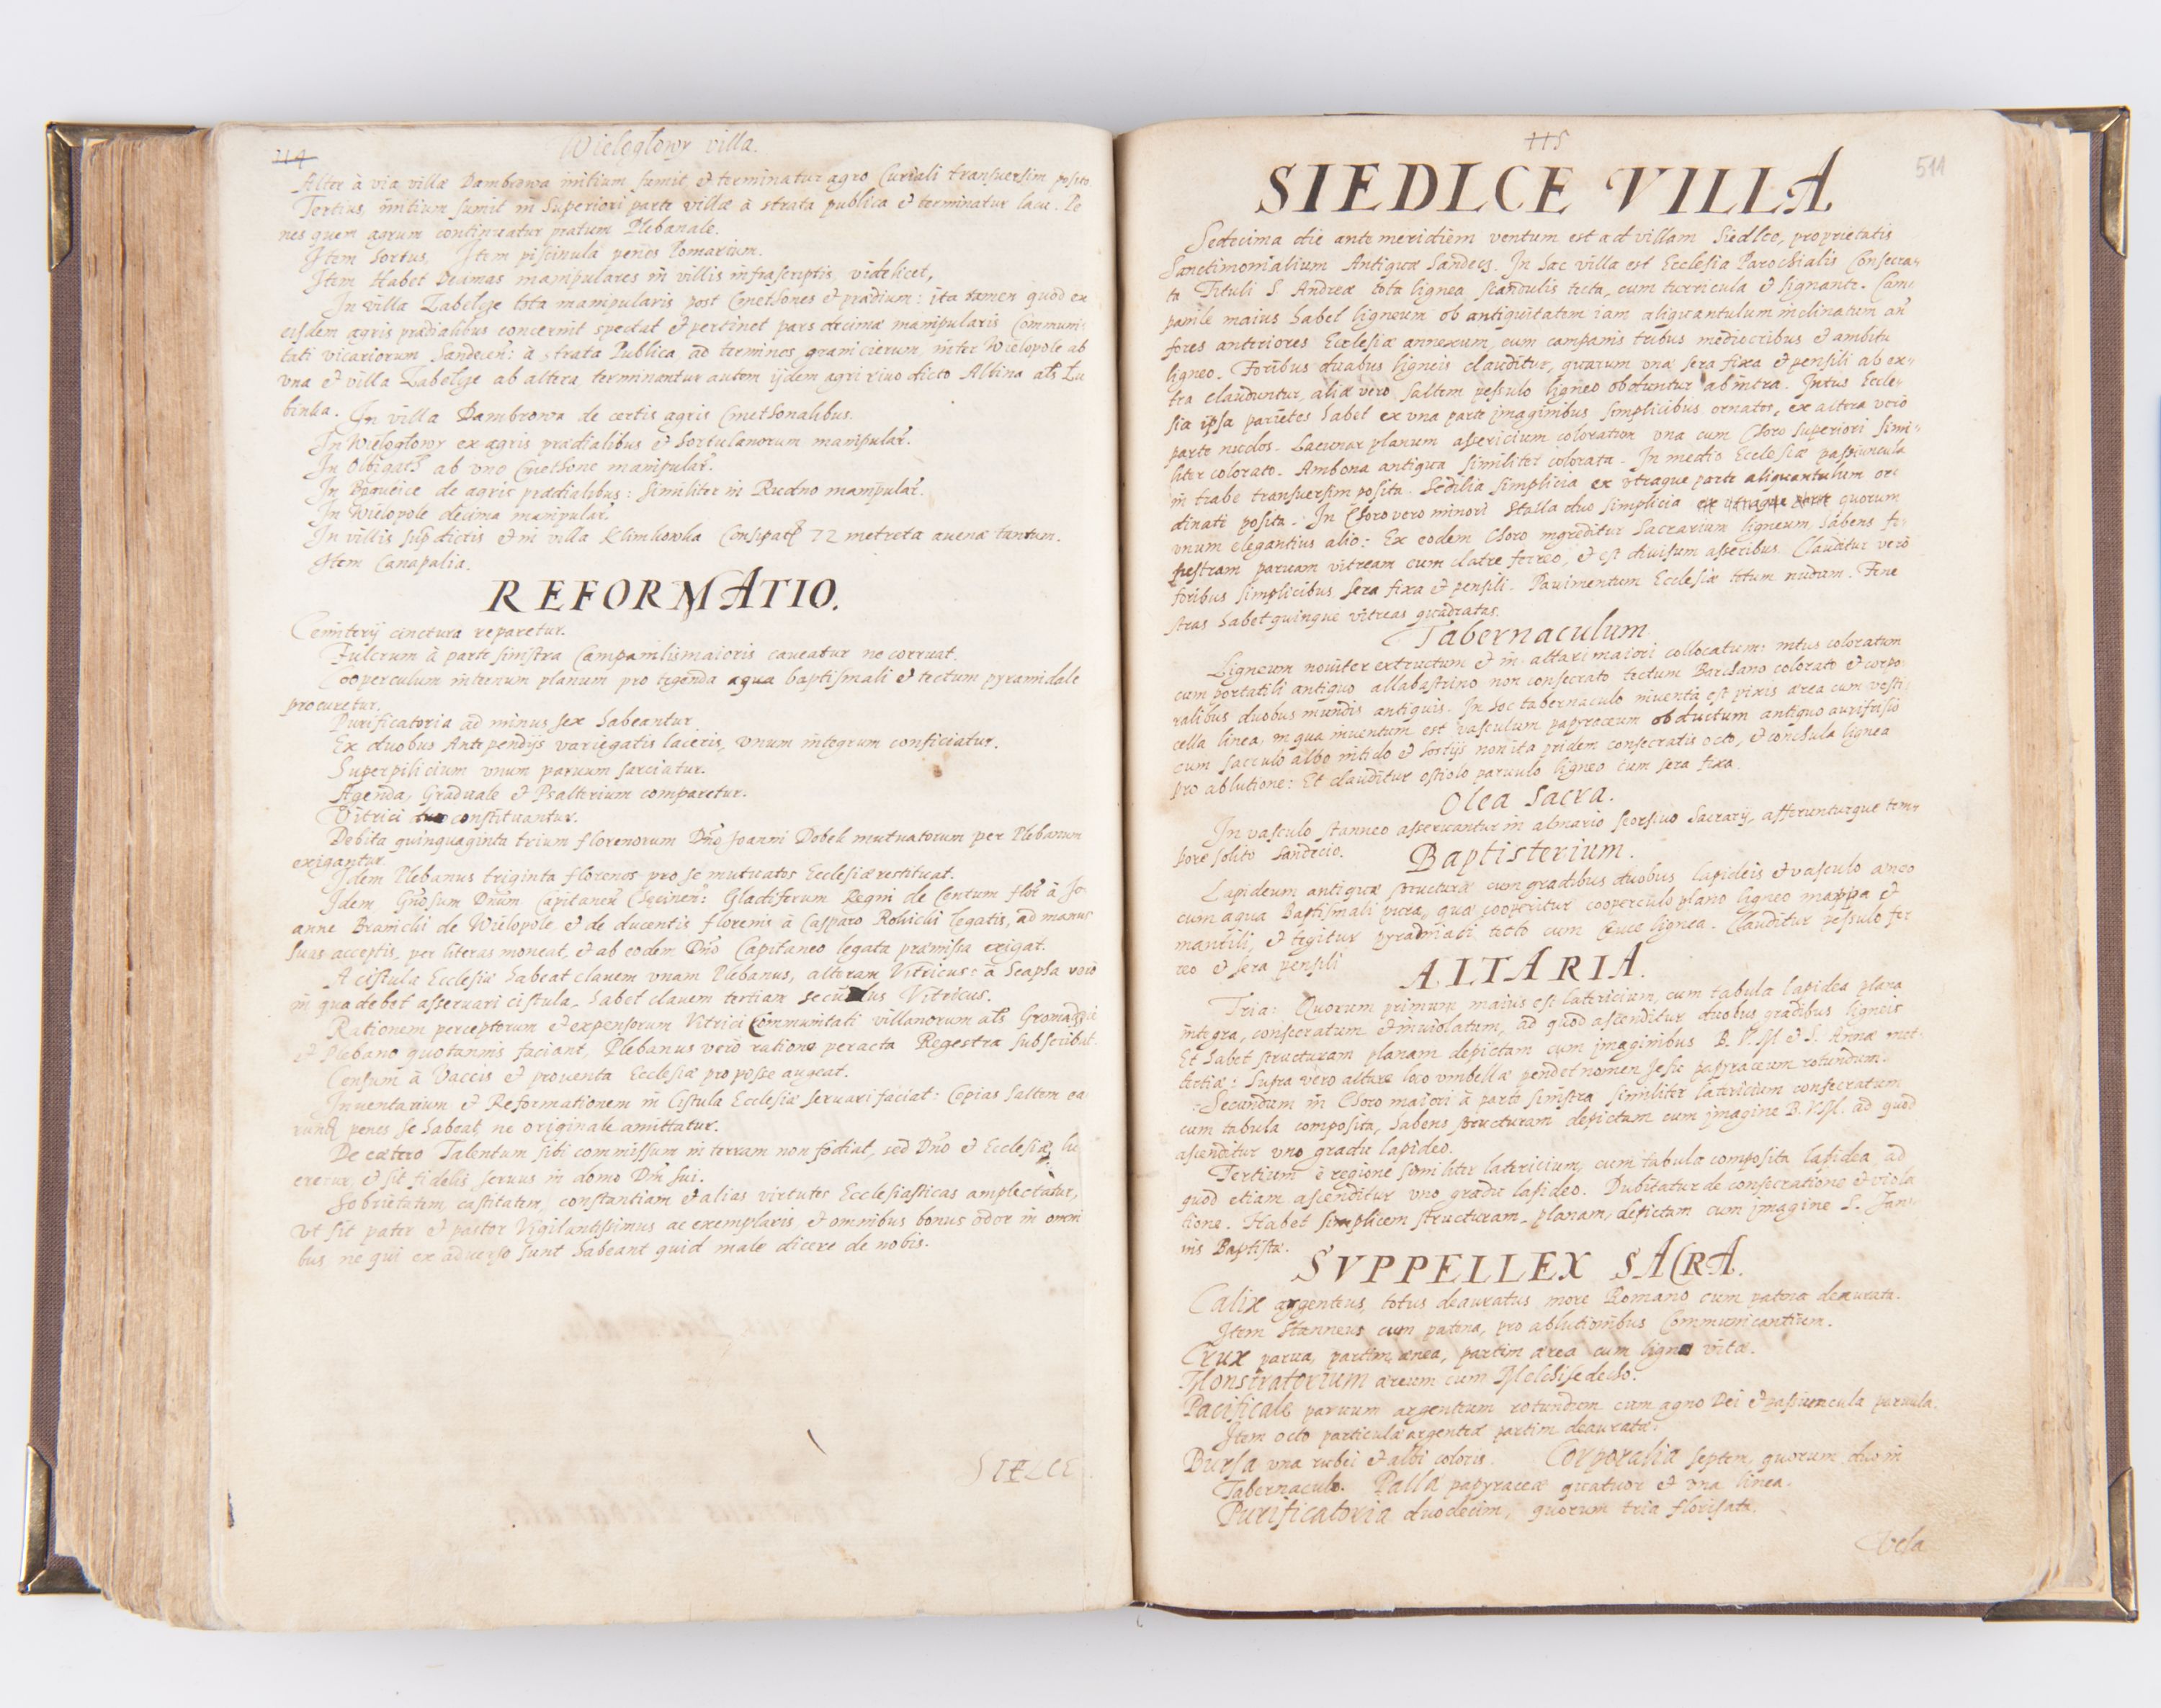 Wielogłowy villa.
Alter à via villæ Dambrowa initium sumit, et terminatur agro Curiali transuersim posito
Tertius, initium sumit in Superiori parte villæ à strata publica et terminatur lacu. Pe
nes quem agrum continuatur pratum Plebanale.
Item hortus, Item piscinula penes Pomarium.
Item Habet Decimas manipulares in villis infrascriptis, videlicet,
In villa Zabełcze tota manipularis post Cmethones et prædium: ita tamen quod ex
eisdem agris prædialibus concernit spectat et pertinet pars decimæ manipularis Communi-
tati vicariorum Sandecen: à strata Publica ad terminos granicierum, inter Wielopole ab
vna et villa Zabełcze ab altera, terminantur autem ijdem agri riuo dicto Albina als Lu
binka. In villa Dambrowa de certis agris Cmethonalibus.
In Wielogłowy ex agris prædialibus et hortulanorum manipular.
In ab vno Cmethone manipular.
In de agris prædialibus: Similiter in Rudno manipular.
In Wielopole decima manipular.
In villis supdictis et in villa Klimkowka 72 metreta auenæ tantum.
Item Canapalia.
REFORMATIO.
Cemiterij cinctura reparetur.
Fulcrum à parte sinistra Campanilis maioris caueatur ne corruat.
Cooperculum internum planum pro tegenda aqua baptismali et tectum pyramidale
procuretur.
Purificatoria ad minus sex habeantur
Ex duobus Antependijs variegatis laceris, vnum integrum conficiatur.
Superpilicium vnum paruum sarciatur.
Agenda, Graduale et Psalterium comparetur.
Vitrici duo constituantur.
Debita quinquaginta trium florenorum Dño Joanni Dobek mutuatorum per Plebanum
exigantur
Idem Plebanus triginta florenos pro se mutuatos Ecclesiæ restituat.
Idem Gñosum Dnum Capitaneu Gladiferum Regni de Centum flor à Jo-
anne Branicki de Wielopole, et de ducentis florenis à Casparo Rohicki legatis, ad manus
suas acceptis, per literas moneat, et ab eodem Dño Capitaneo legata præmissa exigat.
A cistula Ecclesiæ habeat clauem vnam Plebanus, alteram Vitricus: à Scapha vero
in qua debet asseruari cistula, habet clauem tertiam secundus Vitricus.
Rationem perceptorum et expensorum Vitrici Communitati villanorum als Gromadzie
et Plebano quotannis faciant, Plebanus vero ratione peracta Regestra subscribat.
Censum à Vaccis et prouenta Ecclesiæ pro posse augeat.
Inuentarium et Reformationem in Cistula Ecclesiæ seruari faciat: Copias saltem ea
rundem penes se habeat, ne originale amittatur.
De cætero Talentum sibi commissum in terram non fodiat, sed Dño et Ecclesiæ lu
cretur, et sit fidelis seruus in domo Dñi sui.
Sobrietatem, castitatem, constantiam et alias virtutes Ecclesiasticas amplectatur,
vt sit pater et pastor Vigilantissimus ac exemplaris, et omnibus bonus odor in omni
bus ne qui ex aduerso sunt habeant quid male dicere de nobis.
SIELCE
115
511
SIEDLCE VILLA
Sedecima die ante meridiem ventum est ad villam Siedlce, proprietatis
Sanctimonialium Antiquæ Sandecz. In hac villa est Ecclesia Parochialis Consecra-
ta Tituli S. Andreæ tota lignea scandulis tecta, cum turricula et signante. Cam-
panile maius habet ligneum ob antiquitatem iam aliquantulum inclinatum an
fores anteriores Ecclesiæ annexum, cum campanis tribus mediocribus et ambitu
ligneo. Foribus duabus ligneis clauditur, quarum vna sera fixa et pensili ab ex-
tra clauduntur, aliæ vero saltem pessulo ligneo obduntur ab intra. Intus Eccle-
sia ipsa parietes habet ex vna parte imaginibus simplicibus ornatos, ex altera vero
parte nudos. Lacunar planum assericium coloratum vna cum Choro superiori simi-
liter colorato. Ambona antiqua similiter colorata. In medio Ecclesiæ passiuncula
in trabe transuersim posita. Sedilia simplicia ex vtraque parte aliquantulum or-
dinati posita. In Choro vero minori Stalla duo simplicia ex vtraque parte quorum
vnum elegantius alio: Ex eodem Choro ingreditur Sacrarium ligneum, habens fe-
nestram paruam vitream cum clatre ferreo, et est diuisum asseribus. Clauditur vero
foribus simplicibus sera fixa et pensili. Pauimentum Ecclesiæ totum nudum. Fene
stras habet quinque vitreas quadratas.
Tabernaculum
Ligneum nouiter extructum et in altari maiori collocatum: intus coloratum
cum portatili antiquo allabastrino non consecrato tectum Barchano colorato et corpo-
ralibus duobus mundis antiquis. In hoc tabernaculo inuenta est pixis ærea cum vesti
cella linea, in qua inuentum est vasculum papyraceum obductum antiquo aurifrisio
cum sacculo albo nitido et hostijs non ita pridem consecratis octo, et conchula lignea
pro ablutione: Et clauditur ostiolo paruulo ligneo cum sera fixa.
Olea Sacra.
In vasculo stanneo asseruantur in almario seorsiuo Sacrarij, afferunturque tem-
pore solito Sandecio.
Baptisterium.
Lapideum antiquæ structuræ cum gradibus duobus lapideis et vasculo æneo
cum aqua Baptismali pura, quæ cooperitur cooperculo plano ligneo mappa et
mantili, et tegitur pyramidali tecto cum Cruce lignea. Clauditur pessulo fer
reo et sera pensili
ALTARIA.
Tria: Quorum primum maius est latericium, cum tabula lapidea plana
integra, consecratum et inuiolatum, ad quod ascenditur duobus gradibus ligneis
Et habet structuram planam depictam cum imaginibus B. V. M et S. Annæ met-
tertiæ: Supra vero altare loco vmbellæ pendet nomen Jesu papyraceum rotundum.
Secundum in Choro maiori à parte sinistra similiter latericium consecratum
cum tabula composita, habens structuram depictam cum imagine B. V. M. ad quod
ascenditur vno gradu lapideo.
Tertium è regione similiter latericium, cum tabula composita lapidea, ad
quod etiam ascenditur vno gradu lapideo. Dubitatur de consecratione et viola
tione. Habet simplicem structuram, planam, depictam cum imagine S. Joan-
nis Baptistæ.
SVPPELLEX SACRA.
Calix argenteus, totus deauratus more Romano cum patena deaurata.
Item Stanneus cum patena, pro ablutionibus Communicantium.
Crux parua, partim ænea, partim ærea cum ligno vitæ.
Monstratorium æreum cum Melchisedecho.
Pacificale paruum argenteum rotundum cum agno Dei et passiuncula paruula.
Item octo particulæ argenteæ partim deauratæ.
Bursa vna rubei et albi coloris. Corporalia septem, quorum duo in
Tabernaculo. Palla papyraceæ quatuor et vna linea.
Purificatoria duodecim, quorum tria florisata.
Vela